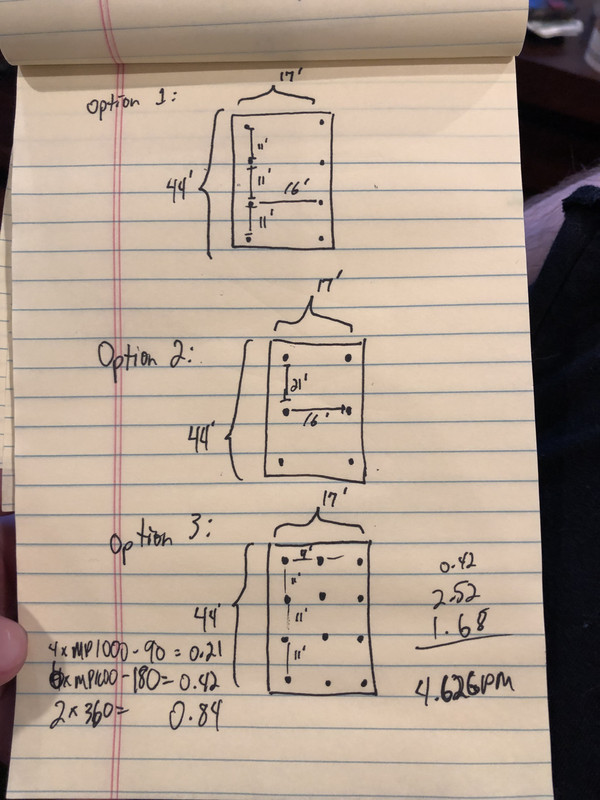 17'
Option 1:
11'
44'
11'
16'
11'
17'
Option 2:
21'
16'
44'
17'
Option 3:
9'
11'
0.42
44'
11'
2.52
1.68
4 x MP1000 - 90 = 0.21
11'
6x MP1000 - 180 = 0.42
4.62GPM
2 x 360 = 0.84